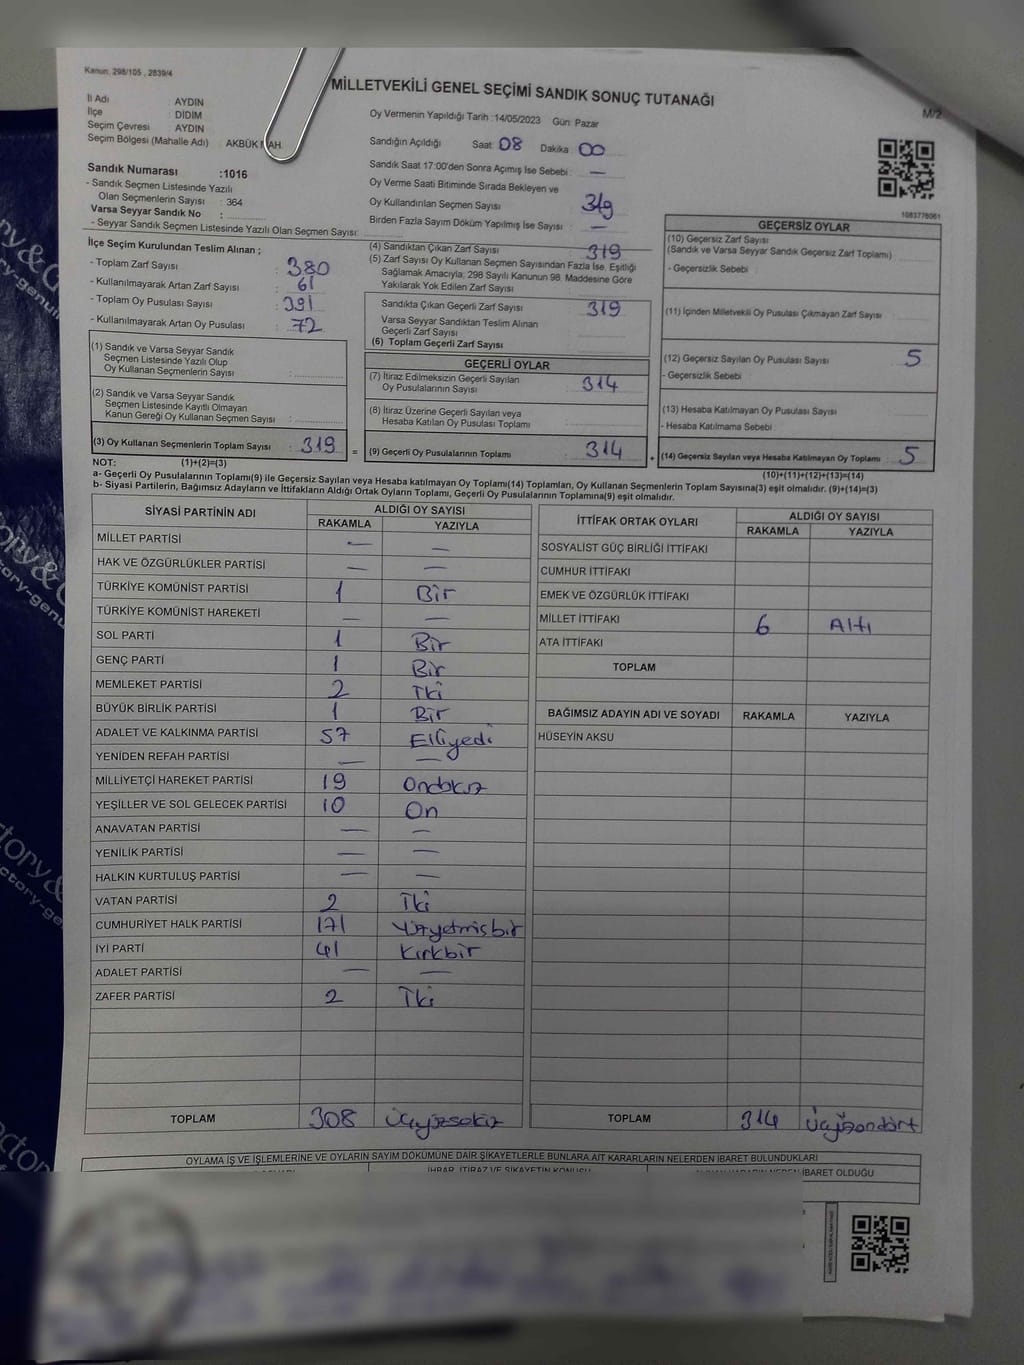 Kanun, 298/105 , 2839/4
MİLLETVEKİLİ GENEL SEÇİMİ SANDIK SONUÇ TUTANAĞI
M/2
İl Adı : AYDIN
İlçe : DİDİM
Seçim Çevresi : AYDIN
Seçim Bölgesi (Mahalle Adı) : AKBÜK MAH.
Oy Vermenin Yapıldığı Tarih :14/05/2023 Gün: Pazar
Sandığın Açıldığı Saat 08 Dakika 00
Sandık Saat 17:00'den Sonra Açımış İse Sebebi : —
Oy Verme Saati Bitiminde Sırada Bekleyen ve
Oy Kullandırılan Seçmen Sayısı : 319
Birden Fazla Sayım Döküm Yapılmış İse Sayısı : —
Sandık Numarası :1016
- Sandık Seçmen Listesinde Yazılı
Olan Seçmenlerin Sayısı : 364
Varsa Seyyar Sandık No :
- Seyyar Sandık Seçmen Listesinde Yazılı Olan Seçmen Sayısı:
1083778061
İlçe Seçim Kurulundan Teslim Alınan ;
- Toplam Zarf Sayısı : 380
- Kullanılmayarak Artan Zarf Sayısı : 61
- Toplam Oy Pusulası Sayısı : 391
- Kullanılmayarak Artan Oy Pusulası : 72
(1) Sandık ve Varsa Seyyar Sandık
Seçmen Listesinde Yazılı Olup
Oy Kullanan Seçmenlerin Sayısı :
(2) Sandık ve Varsa Seyyar Sandık
Seçmen Listesinde Kayıtlı Olmayan
Kanun Gereği Oy Kullanan Seçmen Sayısı :
(3) Oy Kullanan Seçmenlerin Toplam Sayısı : 319 =
(4) Sandıktan Çıkan Zarf Sayısı : 319
(5) Zarf Sayısı Oy Kullanan Seçmen Sayısından Fazla İse, Eşitliği
Sağlamak Amacıyla; 298 Sayılı Kanunun 98. Maddesine Göre
Yakılarak Yok Edilen Zarf Sayısı :
Sandıkta Çıkan Geçerli Zarf Sayısı : 319
Varsa Seyyar Sandıktan Teslim Alınan
Geçerli Zarf Sayısı :
(6) Toplam Geçerli Zarf Sayısı :
GEÇERLİ OYLAR
(7) İtiraz Edilmeksizin Geçerli Sayılan
Oy Pusulalarının Sayısı : 314
(8) İtiraz Üzerine Geçerli Sayılan veya
Hesaba Katılan Oy Pusulası Toplamı :
(9) Geçerli Oy Pusulalarının Toplamı : 314 +
GEÇERSİZ OYLAR
(10) Geçersiz Zarf Sayısı
(Sandık ve Varsa Seyyar Sandık Geçersiz Zarf Toplamı) :
- Geçersizlik Sebebi :
(11) İçinden Milletvekili Oy Pusulası Çıkmayan Zarf Sayısı :
(12) Geçersiz Sayılan Oy Pusulası Sayısı : 5
- Geçersizlik Sebebi :
(13) Hesaba Katılmayan Oy Pusulası Sayısı :
- Hesaba Katılmama Sebebi :
(14) Geçersiz Sayılan veya Hesaba Katılmayan Oy Toplamı : 5
NOT: (1)+(2)=(3) (10)+(11)+(12)+(13)=(14)
a- Geçerli Oy Pusulalarının Toplamı(9) ile Geçersiz Sayılan veya Hesaba katılmayan Oy Toplamı(14) Toplamları, Oy Kullanan Seçmenlerin Toplam Sayısına(3) eşit olmalıdır. (9)+(14)=(3)
b- Siyasi Partilerin, Bağımsız Adayların ve İttifakların Aldığı Ortak Oyların Toplamı, Geçerli Oy Pusulalarının Toplamına(9) eşit olmalıdır.
SİYASİ PARTİNİN ADI ALDIĞI OY SAYISI
RAKAMLA YAZIYLA
MİLLET PARTİSİ — —
HAK VE ÖZGÜRLÜKLER PARTİSİ — —
TÜRKİYE KOMÜNİST PARTİSİ 1 Bir
TÜRKİYE KOMÜNİST HAREKETİ — —
SOL PARTİ 1 Bir
GENÇ PARTİ 1 Bir
MEMLEKET PARTİSİ 2 İki
BÜYÜK BİRLİK PARTİSİ 1 Bir
ADALET VE KALKINMA PARTİSİ 57 Elliyedi
YENİDEN REFAH PARTİSİ — —
MİLLİYETÇİ HAREKET PARTİSİ 19 Ondokuz
YEŞİLLER VE SOL GELECEK PARTİSİ 10 On
ANAVATAN PARTİSİ — —
YENİLİK PARTİSİ — —
HALKIN KURTULUŞ PARTİSİ — —
VATAN PARTİSİ 2 İki
CUMHURİYET HALK PARTİSİ 171 Yüzyetmişbir
İYİ PARTİ 41 Kırkbir
ADALET PARTİSİ — —
ZAFER PARTİSİ 2 İki
TOPLAM 308 Üçyüzsekiz
İTTİFAK ORTAK OYLARI ALDIĞI OY SAYISI
RAKAMLA YAZIYLA
SOSYALİST GÜÇ BİRLİĞİ İTTİFAKI
CUMHUR İTTİFAKI
EMEK VE ÖZGÜRLÜK İTTİFAKI
MİLLET İTTİFAKI 6 Altı
ATA İTTİFAKI
TOPLAM
BAĞIMSIZ ADAYIN ADI VE SOYADI RAKAMLA YAZIYLA
HÜSEYİN AKSU
TOPLAM 314 Üçyüzondört
OYLAMA İŞ VE İŞLEMLERİNE VE OYLARIN SAYIM DÖKÜMÜNE DAİR ŞİKAYETLERLE BUNLARA AİT KARARLARIN NELERDEN İBARET BULUNDUKLARI
İHBAR, İTİRAZ VE ŞİKAYETİN KONUSU
İBARET OLDUĞU